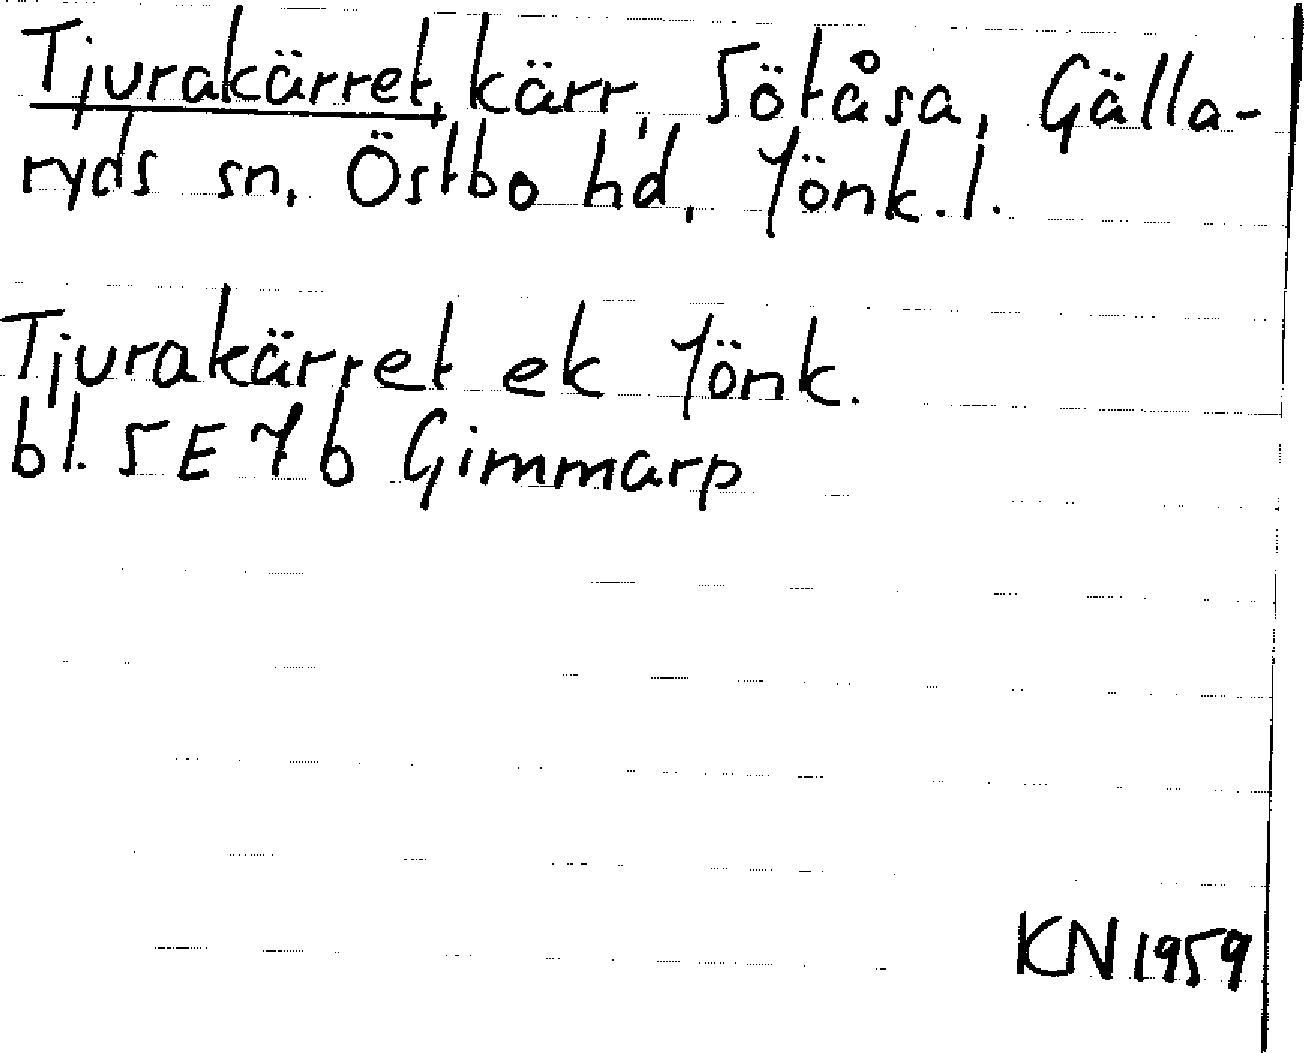 Tjurakärret, kärr, Sötåsa, Gälla-
ryds sn, Östbo hd, Jönk. l.
Tjurakärret ek Jönk.
bl. 5E 7b Gimmarp
KN 1959